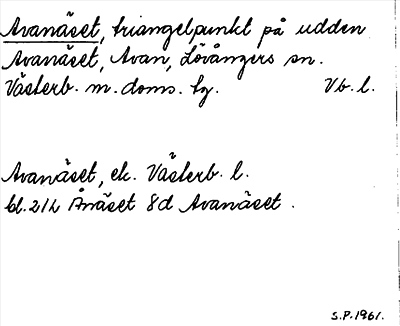 Avanäset, triangelpunkt på udden
Avanäset, Avan, Lövångers sn.
Västerb. m. doms. tg. Vb. l.
Avanäset, ek. Västerb. l.
bl. 21L Ånäset 8d Avanäset.
S.P. 1961.